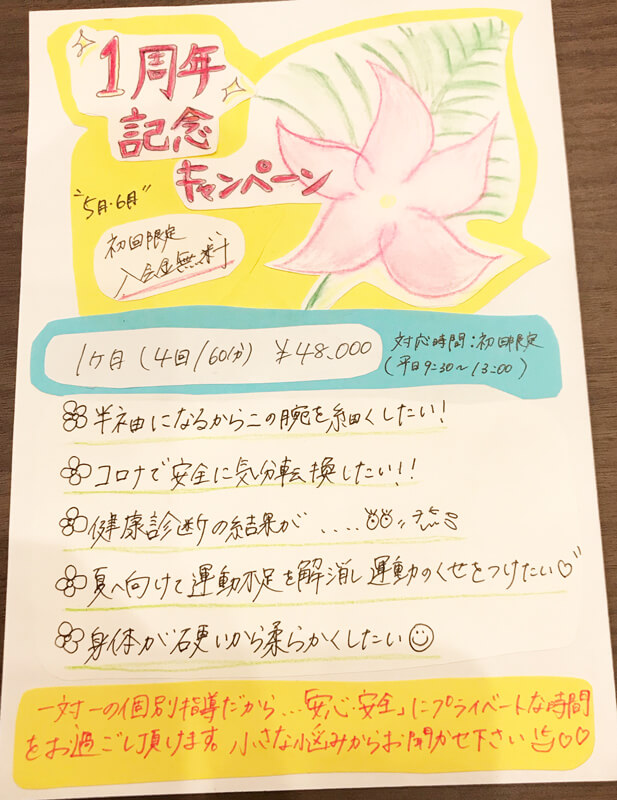 1周年
記念
キャンペーン
"5月・6月"
初回限定
入会金無料
1ヶ月 (4回/60分) ¥48,000
対応時間:初回限定
(平日9:30〜13:00)
半袖になるから二の腕を細くしたい!
コロナで安全に気分転換したい!!
健康診断の結果が....
夏へ向けて運動不足を解消し運動のくせをつけたい♡
身体が硬いから柔らかくしたい☺
一対一の個別指導だから...「安心・安全」にプライベートな時間
をお過ごし頂けます。小さな悩みからお聞かせ下さい♡♡